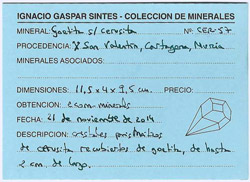 IGNACIO GASPAR SINTES - COLECCION DE MINERALES
MINERAL: Goetita s/ cerusita Nº: CER 57
PROCEDENCIA: X San Valentín, Cartagena, Murcia
MINERALES ASOCIADOS:
DIMENSIONES: 11,5 x 4 x 9,5 cm. PRECIO:
OBTENCION: Ecom-minerals
FECHA: 21 de noviembre de 2014
DESCRIPCION: cristales prismáticos
de cerusita recubiertos de goetita, de hasta
2 cm. de largo.